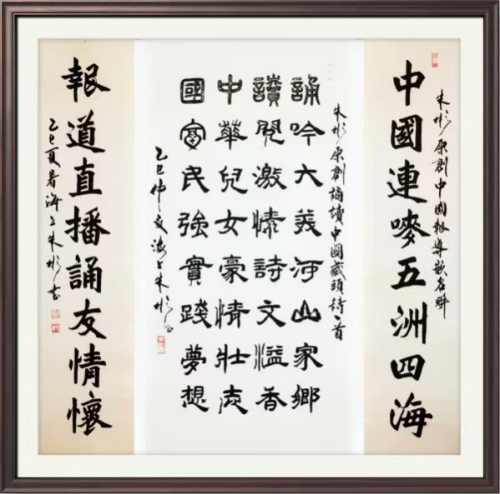 朱彬原創中國報導嵌名联
中國連嘜五洲四海
朱彬原創誦讀中國藏頭詩一首
誦吟大美河山家鄉
讀閱激情詩文溢香
中華兒女豪情壯志
國富民強實踐夢想
乙巳仲夏滬上朱彬書
報道直播誦友情懷
乙巳夏暑海上朱彬書